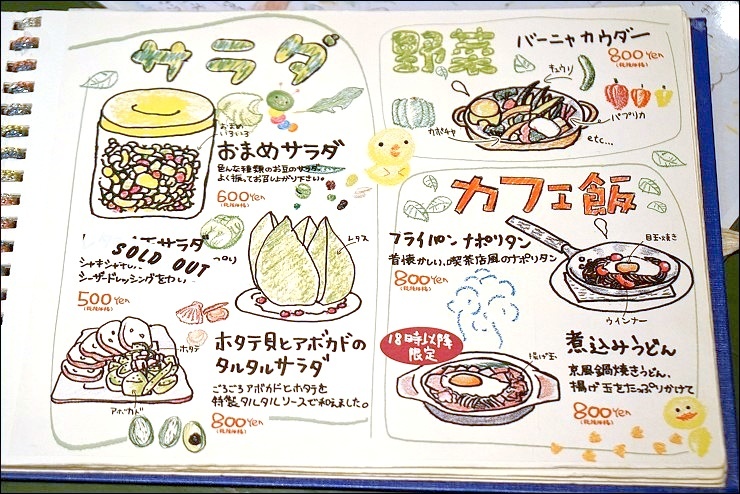 サラダ
おまめ
いろいろ
おまめサラダ
色んな種類のお豆のサラダ。
よく振ってお召し上がり下さい。
600Yen
サラダ
SOLD OUT
シーザードレッシングを
500Yen
レタス
ホタテ
アボカド
ホタテ貝とアボカドの
タルタルサラダ
ごろごろアボカドとホタテを
特製タルタルソースで和えました。
800Yen
野菜
バーニャカウダー
800Yen
キュウリ
カボチャ
パプリカ
etc...
カフェ飯
フライパンナポリタン
昔懐かしい、喫茶店風のナポリタン
800Yen
目玉焼き
ウインナー
18時以降
限定
揚げ玉
煮込みうどん
京風鍋焼きうどん、
揚げ玉をたっぷりかけて
800Yen